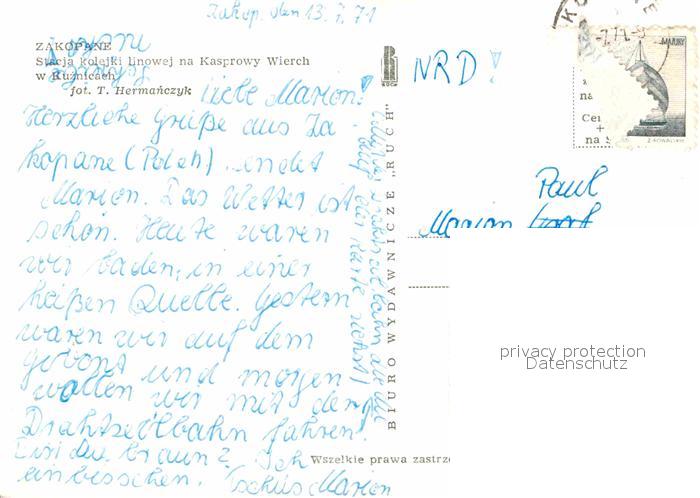 Zakop. den 13.7.71
ZAKOPANE
Stacja kolejki linowej na Kasprowy Wierch
w Kuźnicach
fot. T. Hermańczyk
Liebe Marion!
Herzliche Grüße aus Za
kopane (Polen) sendet
Marion. Das Wetter ist
schön. Heute waren
wir baden, in einer
heißen Quelle. Gestern
waren wir auf dem
Gibont und morgen
wollen wir mit der
Drahtseilbahn fahren!
Bist du braun? Ich
ein bisschen. Tschüs Marion
Drahtseilbahn die du
auf der Karte siehst!
BIURO WYDAWNICZE „RUCH"
RUCH
Wszelkie prawa zastrz
NRD!
MAZURY
na
Cen
+
na
Paul
Marion
privacy protection
Datenschutz